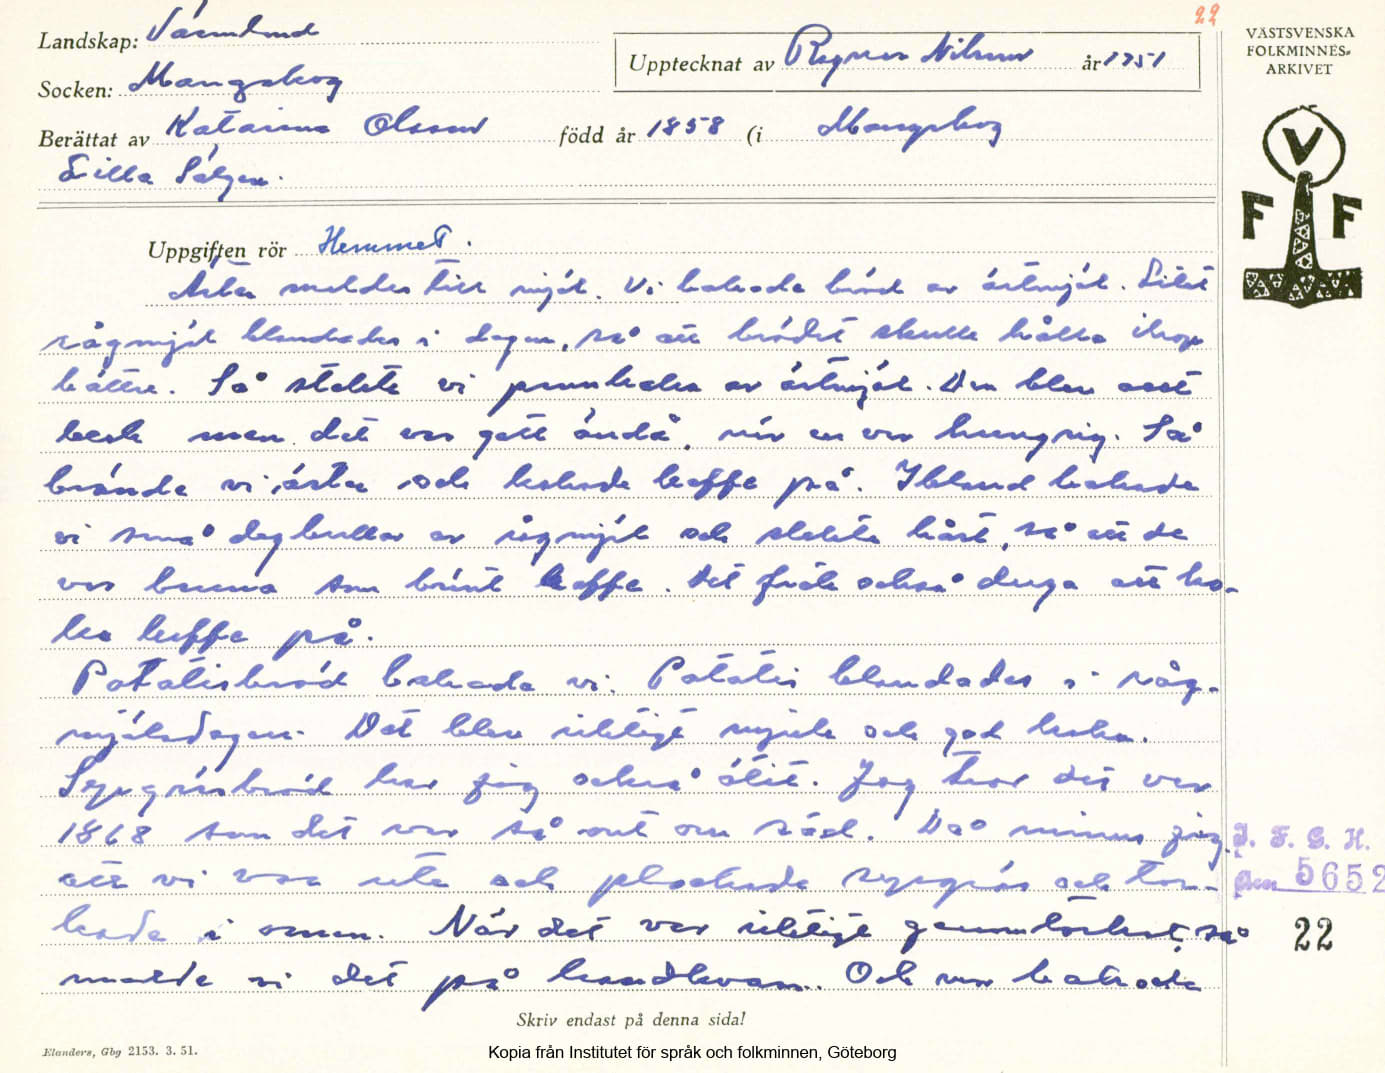 22
Landskap: Värmland
Upptecknat av Ragnar Nilsson år 1951
VÄSTSVENSKA
FOLKMINNES-
ARKIVET
Socken: Mangskog
Berättat av Katarina Olsson född år 1858 (i Mangskog
Lilla Sälgen.
V
F F
Uppgiften rör Hemmet.
Ärter maldes till mjöl. Vi bakade bröd av ärtmjöl. Litet
rågmjöl blandades i degen, så att brödet skulle hålla ihop
bättre. Så stekte vi pannkaka av ärtmjöl. Den blev
besk men det var gott ändå, när en var hungrig. Så
brände vi ärter och kokade kaffe på. Ibland bakade
vi små degbullar av rågmjöl och stekte hårt, så att de
var bruna som bränt kaffe. Det fick också duga att ko-
ka kaffe på.
Potatisbröd bakade vi. Potatis blandades i råg-
mjölsdegen. Det blev riktigt mjuk och god kaka.
Sypgräsbröd har jag också ätit. Jag tror det var
1868 som det var så ont om säd. Då minns jag
att vi var ute och plockade sypgräs och tor-
kade i omnen. När det var riktigt genomtorkat, så
malde vi det på handkvarn. Och mor bakade
J. F. G. H.
Acc 5652
22
Skriv endast på denna sida!
Elanders, Gbg 2153. 3. 51.
Kopia från Institutet för språk och folkminnen, Göteborg